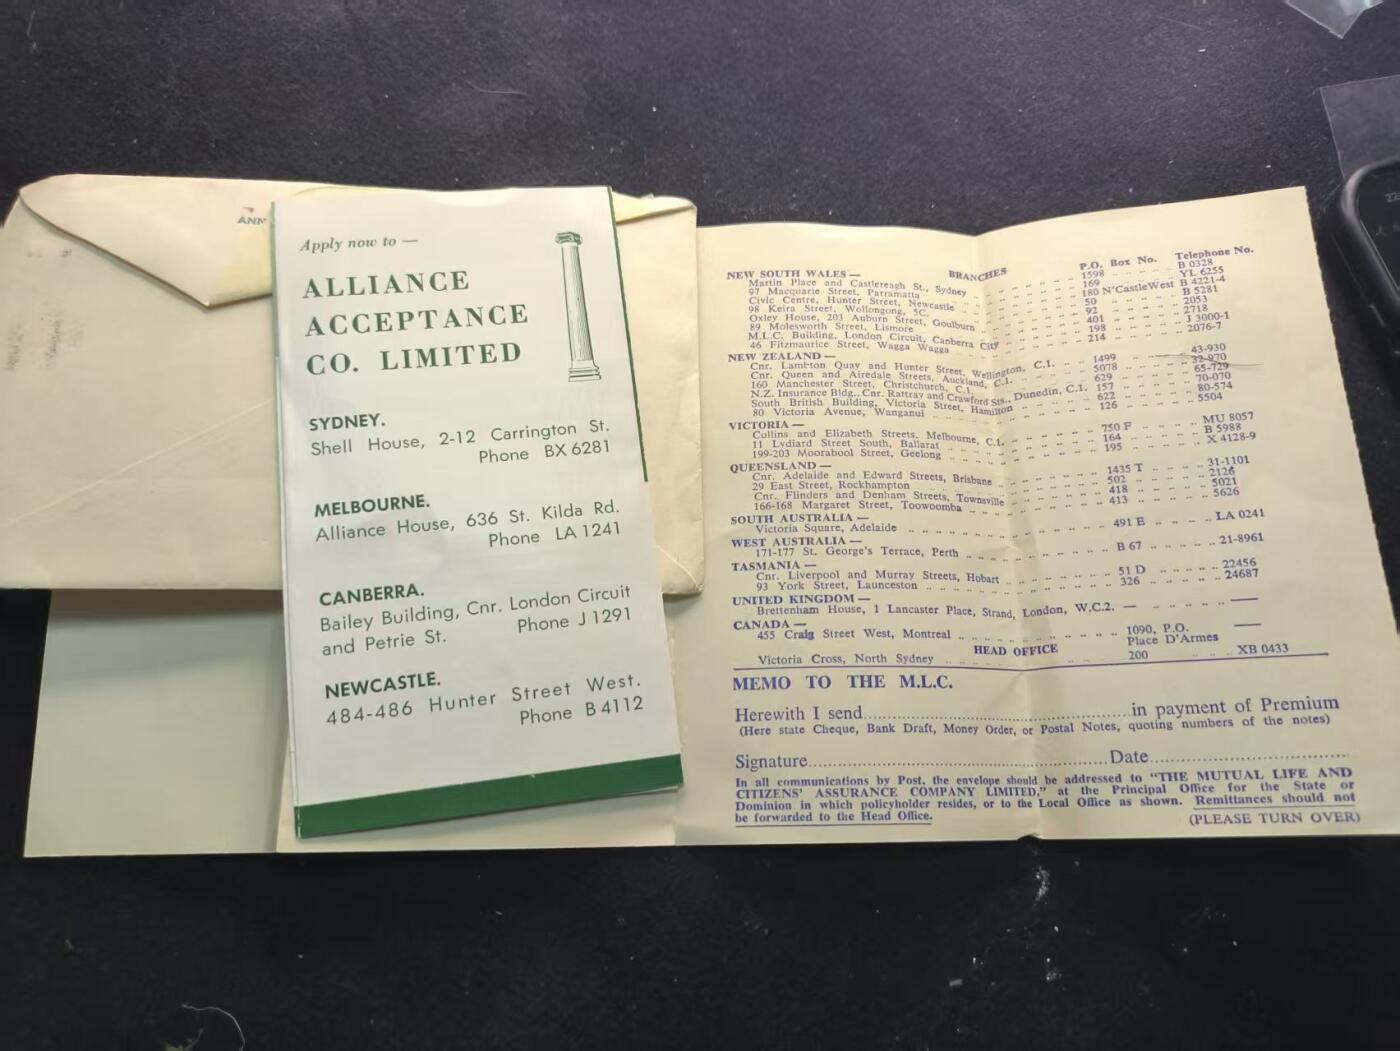 ANN
Apply now to —
ALLIANCE
ACCEPTANCE
CO. LIMITED
SYDNEY.
Shell House, 2-12 Carrington St.
Phone BX 6281
MELBOURNE.
Alliance House, 636 St. Kilda Rd.
Phone LA 1241
CANBERRA.
Bailey Building, Cnr. London Circuit
and Petrie St. Phone J 1291
NEWCASTLE.
484-486 Hunter Street West.
Phone B 4112
BRANCHES P.O. Box No. Telephone No.
NEW SOUTH WALES —
Martin Place and Castlereagh St., Sydney 1598 B 0328
97 Macquarie Street, Parramatta 169 YL 6255
Civic Centre, Hunter Street, Newcastle 180 N'CastleWest B 4221-4
98 Keira Street, Wollongong, 5C. 50 B 5281
Oxley House, 203 Auburn Street, Goulburn 92 2053
89 Molesworth Street, Lismore 401 2718
M.L.C. Building, London Circuit, Canberra City 198 J 3000-1
46 Fitzmaurice Street, Wagga Wagga 214 2076-7
NEW ZEALAND —
Cnr. Lambton Quay and Hunter Street, Wellington, C.1. 1499 43-930
Cnr. Queen and Airedale Streets, Auckland, C.1. 5078 32-970
160 Manchester Street, Christchurch, C.1. 629 65-729
N.Z. Insurance Bldg., Cnr. Rattray and Crawford Sts., Dunedin, C.1. 157 70-070
South British Building, Victoria Street, Hamilton 622 80-574
80 Victoria Avenue, Wanganui 126 5504
VICTORIA —
Collins and Elizabeth Streets, Melbourne, C.1. 750 F MU 8057
11 Lydiard Street South, Ballarat 164 B 5988
199-203 Moorabool Street, Geelong 195 X 4128-9
QUEENSLAND —
Cnr. Adelaide and Edward Streets, Brisbane 1435 T 31-1101
29 East Street, Rockhampton 502 2126
Cnr. Flinders and Denham Streets, Townsville 418 5021
166-168 Margaret Street, Toowoomba 413 5626
SOUTH AUSTRALIA —
Victoria Square, Adelaide 491 E LA 0241
WEST AUSTRALIA —
171-177 St. George's Terrace, Perth B 67 21-8961
TASMANIA —
Cnr. Liverpool and Murray Streets, Hobart 51 D 22456
93 York Street, Launceston 326 24687
UNITED KINGDOM —
Brettenham House, 1 Lancaster Place, Strand, London, W.C.2. — ——
CANADA —
455 Craig Street West, Montreal 1090, P.O. ——
Place D'Armes
HEAD OFFICE
Victoria Cross, North Sydney 200 XB 0433
MEMO TO THE M.L.C.
Herewith I send in payment of Premium
(Here state Cheque, Bank Draft, Money Order, or Postal Notes, quoting numbers of the notes)
Signature Date
In all communications by Post, the envelope should be addressed to "THE MUTUAL LIFE AND
CITIZENS' ASSURANCE COMPANY LIMITED," at the Principal Office for the State or
Dominion in which policyholder resides, or to the Local Office as shown. Remittances should not
be forwarded to the Head Office. (PLEASE TURN OVER)